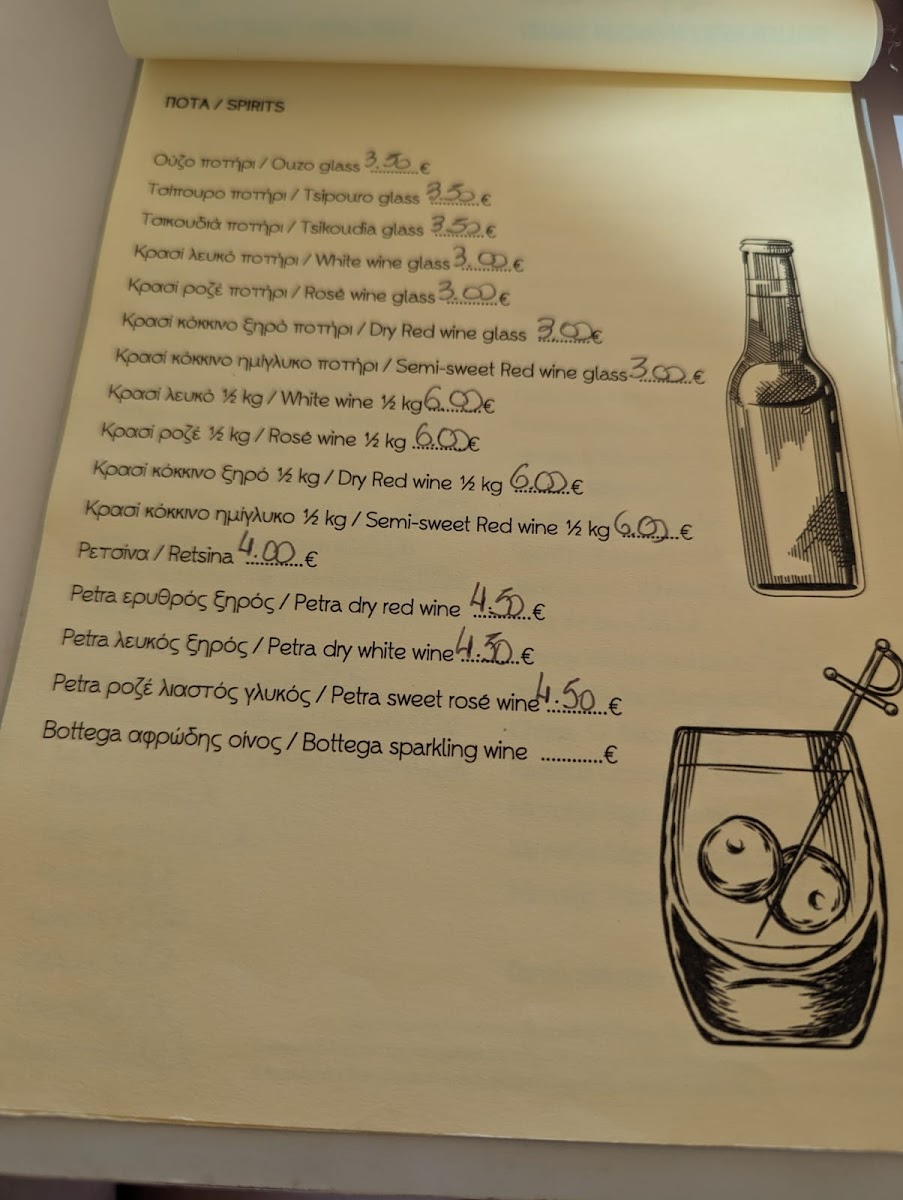 ΠΟΤΑ / SPIRITS
Ούζο ποτήρι / Ouzo glass 3.50 €
Τσίπουρο ποτήρι / Tsipouro glass 3.50 €
Τσικουδιά ποτήρι / Tsikoudia glass 3.50 €
Κρασί λευκό ποτήρι / White wine glass 3.00 €
Κρασί ροζέ ποτήρι / Rosé wine glass 3.00 €
Κρασί κόκκινο ξηρό ποτήρι / Dry Red wine glass 3.00 €
Κρασί κόκκινο ημίγλυκο ποτήρι / Semi-sweet Red wine glass 3.00 €
Κρασί λευκό ½ kg / White wine ½ kg 6.00 €
Κρασί ροζέ ½ kg / Rosé wine ½ kg 6.00 €
Κρασί κόκκινο ξηρό ½ kg / Dry Red wine ½ kg 6.00 €
Κρασί κόκκινο ημίγλυκο ½ kg / Semi-sweet Red wine ½ kg 6.00 €
Ρετσίνα / Retsina 4.00 €
Petra ερυθρός ξηρός / Petra dry red wine 4.50 €
Petra λευκός ξηρός / Petra dry white wine 4.50 €
Petra ροζέ λιαστός γλυκός / Petra sweet rosé wine 4.50 €
Bottega αφρώδης οίνος / Bottega sparkling wine ............€